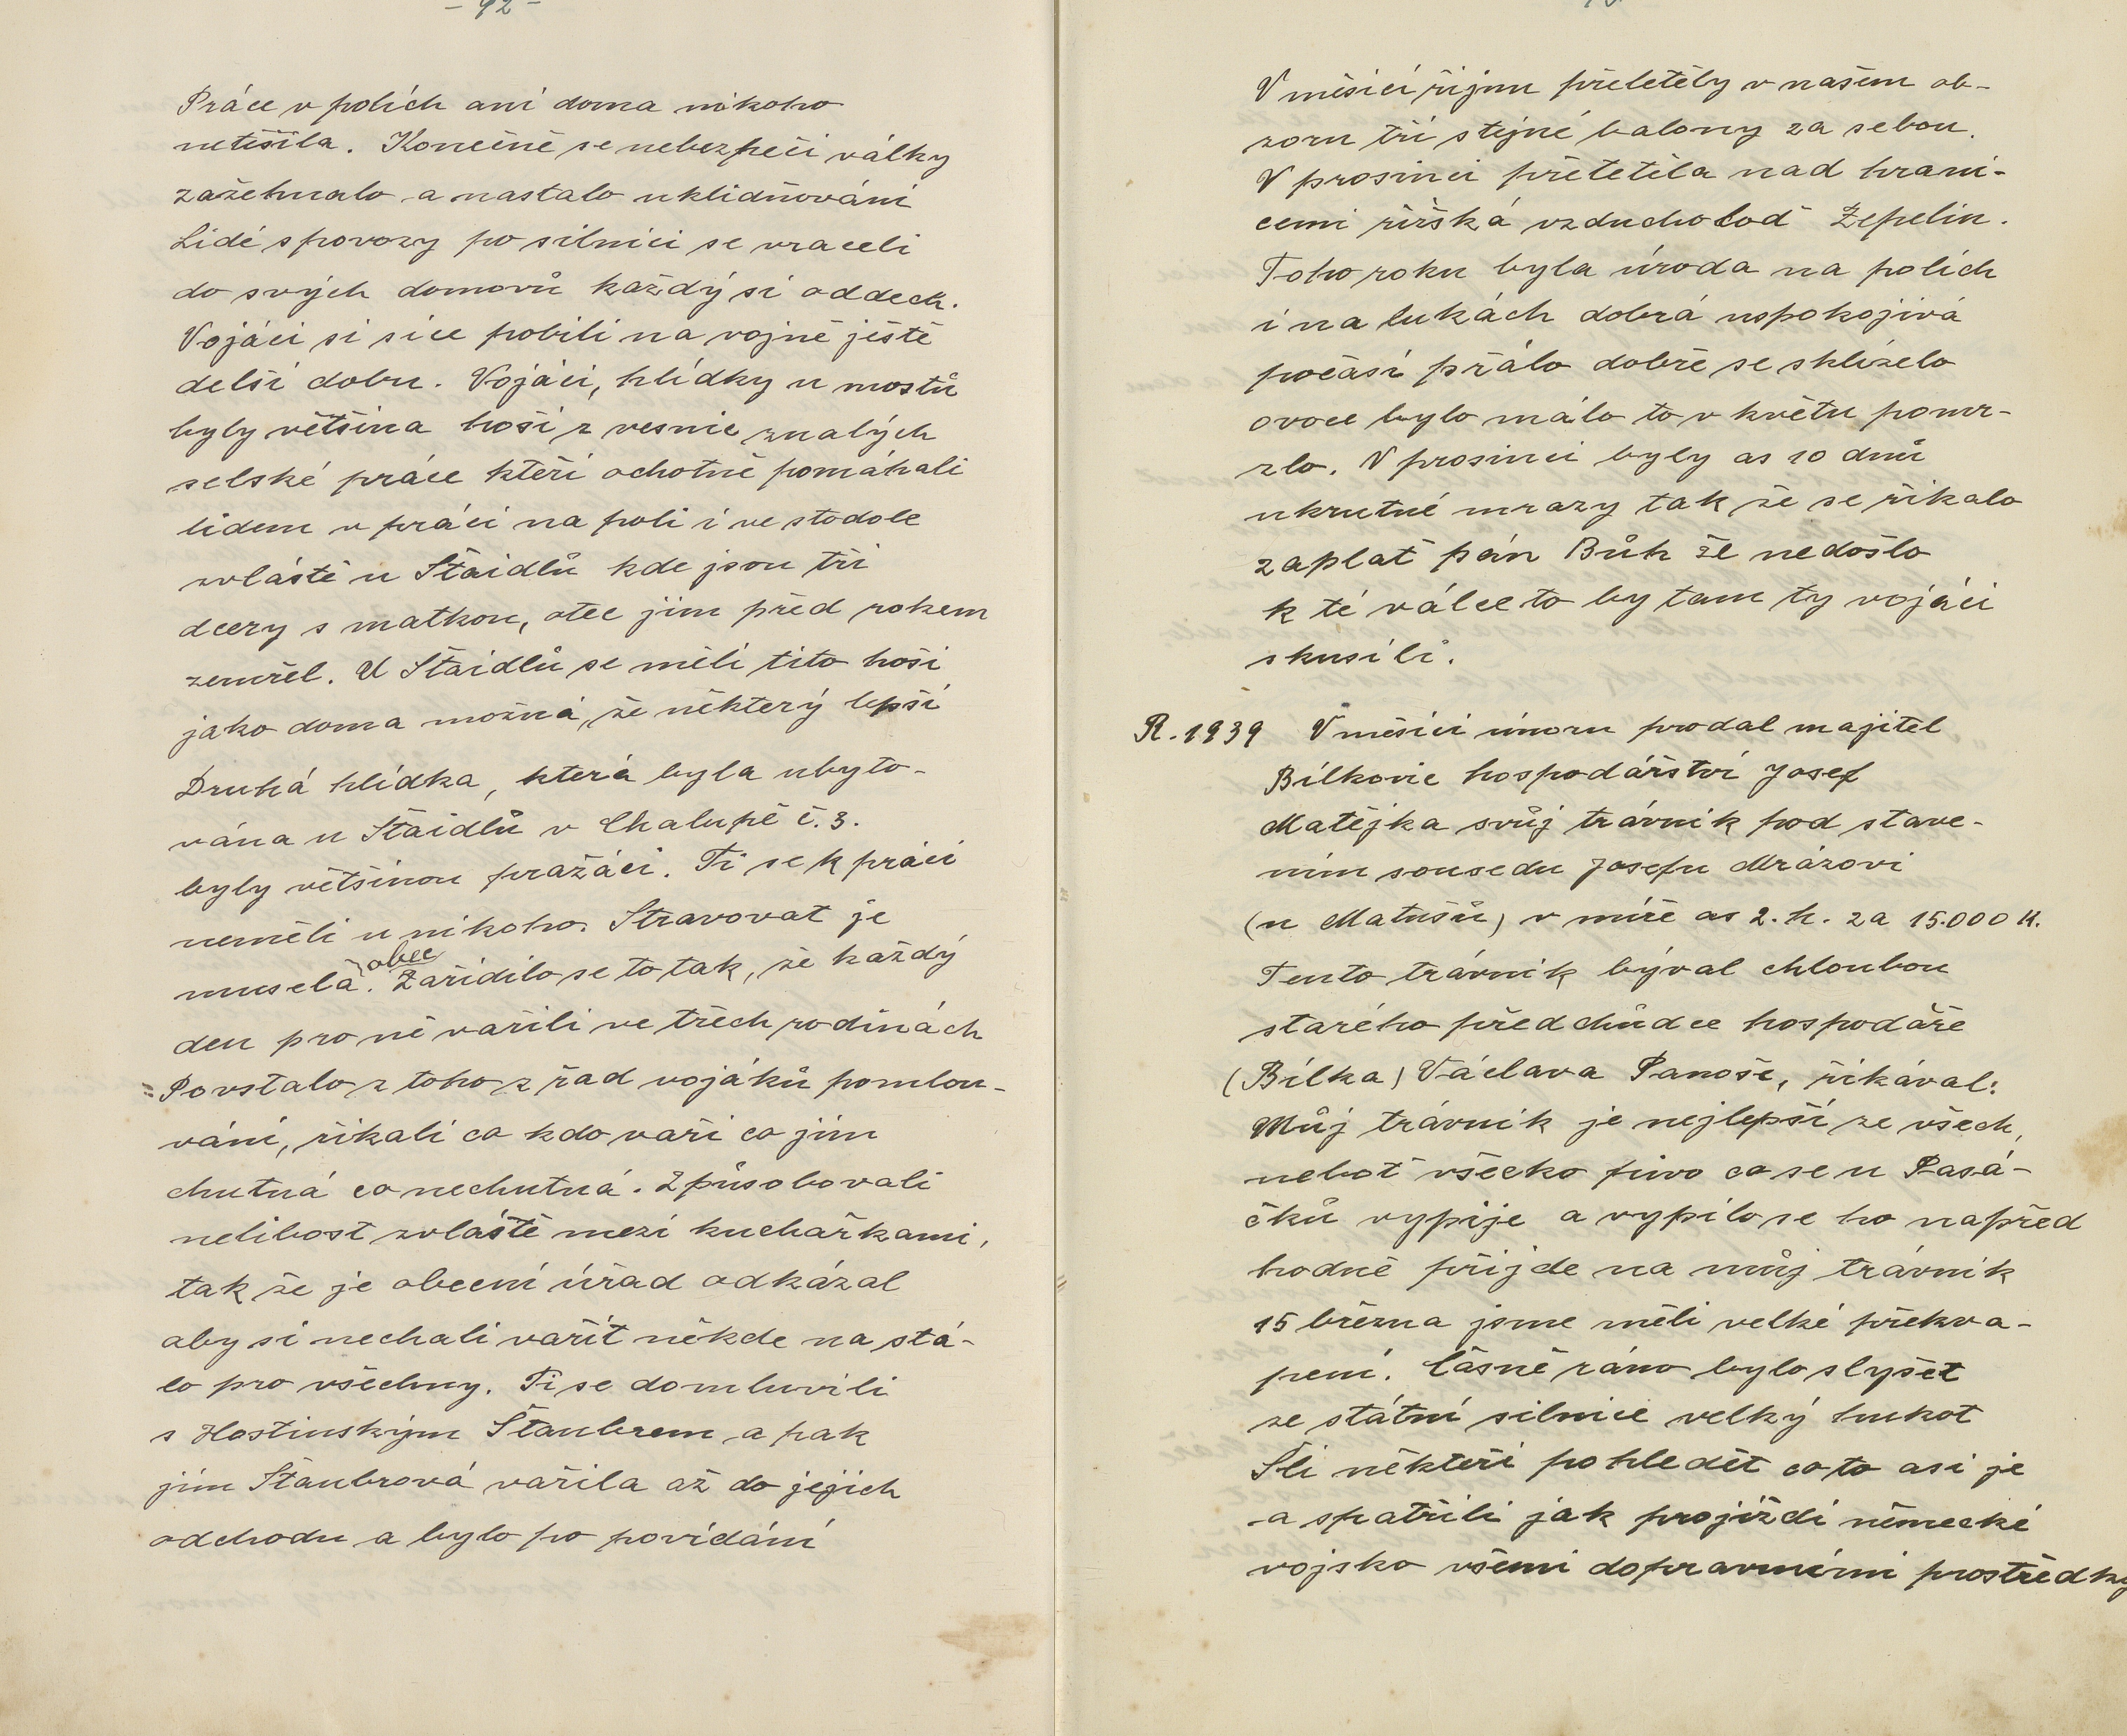 - 92 -
Práce v polích ani doma nikoho
netěšila. Konečně se nebezpečí války
zažehnalo a nastalo uklidňování
Lidé s povozy po silnici se vraceli
do svých domovů každý si oddech.
Vojáci si sice pobili na vojně ještě
delší dobu. Vojáci, hlídky u mostů
byly většina hoši z vesnic znalých
selské práce kteří ochotně pomáhali
lidem v práci na poli i ve stodole
zvláště u Štaidlů kde jsou tři
dcery s matkou, otec jim před rokem
zemřel. U Štaidlů se měli tito hoši
jako doma možná, že některý lepší
Druhá hlídka, která byla ubyto-
vána u Štaidlů v Chalupě č. 3.
byly většinou pražáci. Ti se k práci
neměli u nikoho. Stravovat je
musela obec. Zařídilo se to tak, že každý
den pro ně vařili ve třech rodinách
Povstalo z toho z řad vojáků pomlou-
vání, říkali co kdo vaří co jim
chutná co nechutná. Způsobovali
nelibost zvláště mezi kuchařkami,
tak že je obecní úřad odkázal
aby si nechali vařit někde na stá-
lo pro všechny. Ti se domluvili
s Hostinským Štaubrem a pak
jim Štaubrová vařila až do jejich
odchodu a bylo po povídání
V měsíci říjnu přeletěly v našem ob-
zoru tři stejné balony za sebou.
V prosinci přeletěla nad hrani-
cemi říšská vzducholoď Zepelin.
Toho roku byla úroda na polích
i na lukách dobrá uspokojivá
počasí přálo dobře se sklízelo
ovoce bylo málo to v květu pomr-
zlo. V prosinci byly as 10 dnů
ukrutné mrazy tak že se říkalo
zaplať pán Bůh že nedošlo
k té válce to by tam ty vojáci
skusili.
R. 1939 V měsíci únoru prodal majitel
Bílkovic hospodářství Josef
Matějka svůj trávník pod stave-
ním sousedu Josefu Mrázovi
(u Matušů) v míře as 2. h. za 15.000 K.
Tento trávník býval chloubou
starého předchůdce hospodáře
(Bílka) Václava Panoše, říkával:
Můj trávník je nejlepší ze všech,
neboť všecko pivo co se u Pasá-
čků vypije a vypilo se ho napřed
hodně přijde na můj trávník
15 března jsme měli velké překva-
pení. Časně ráno bylo slyšet
ze státní silnice velký hukot
Šli někteří pohledět co to asi je
a spatřili jak projíždí německé
vojsko všemi dopravními prostředky